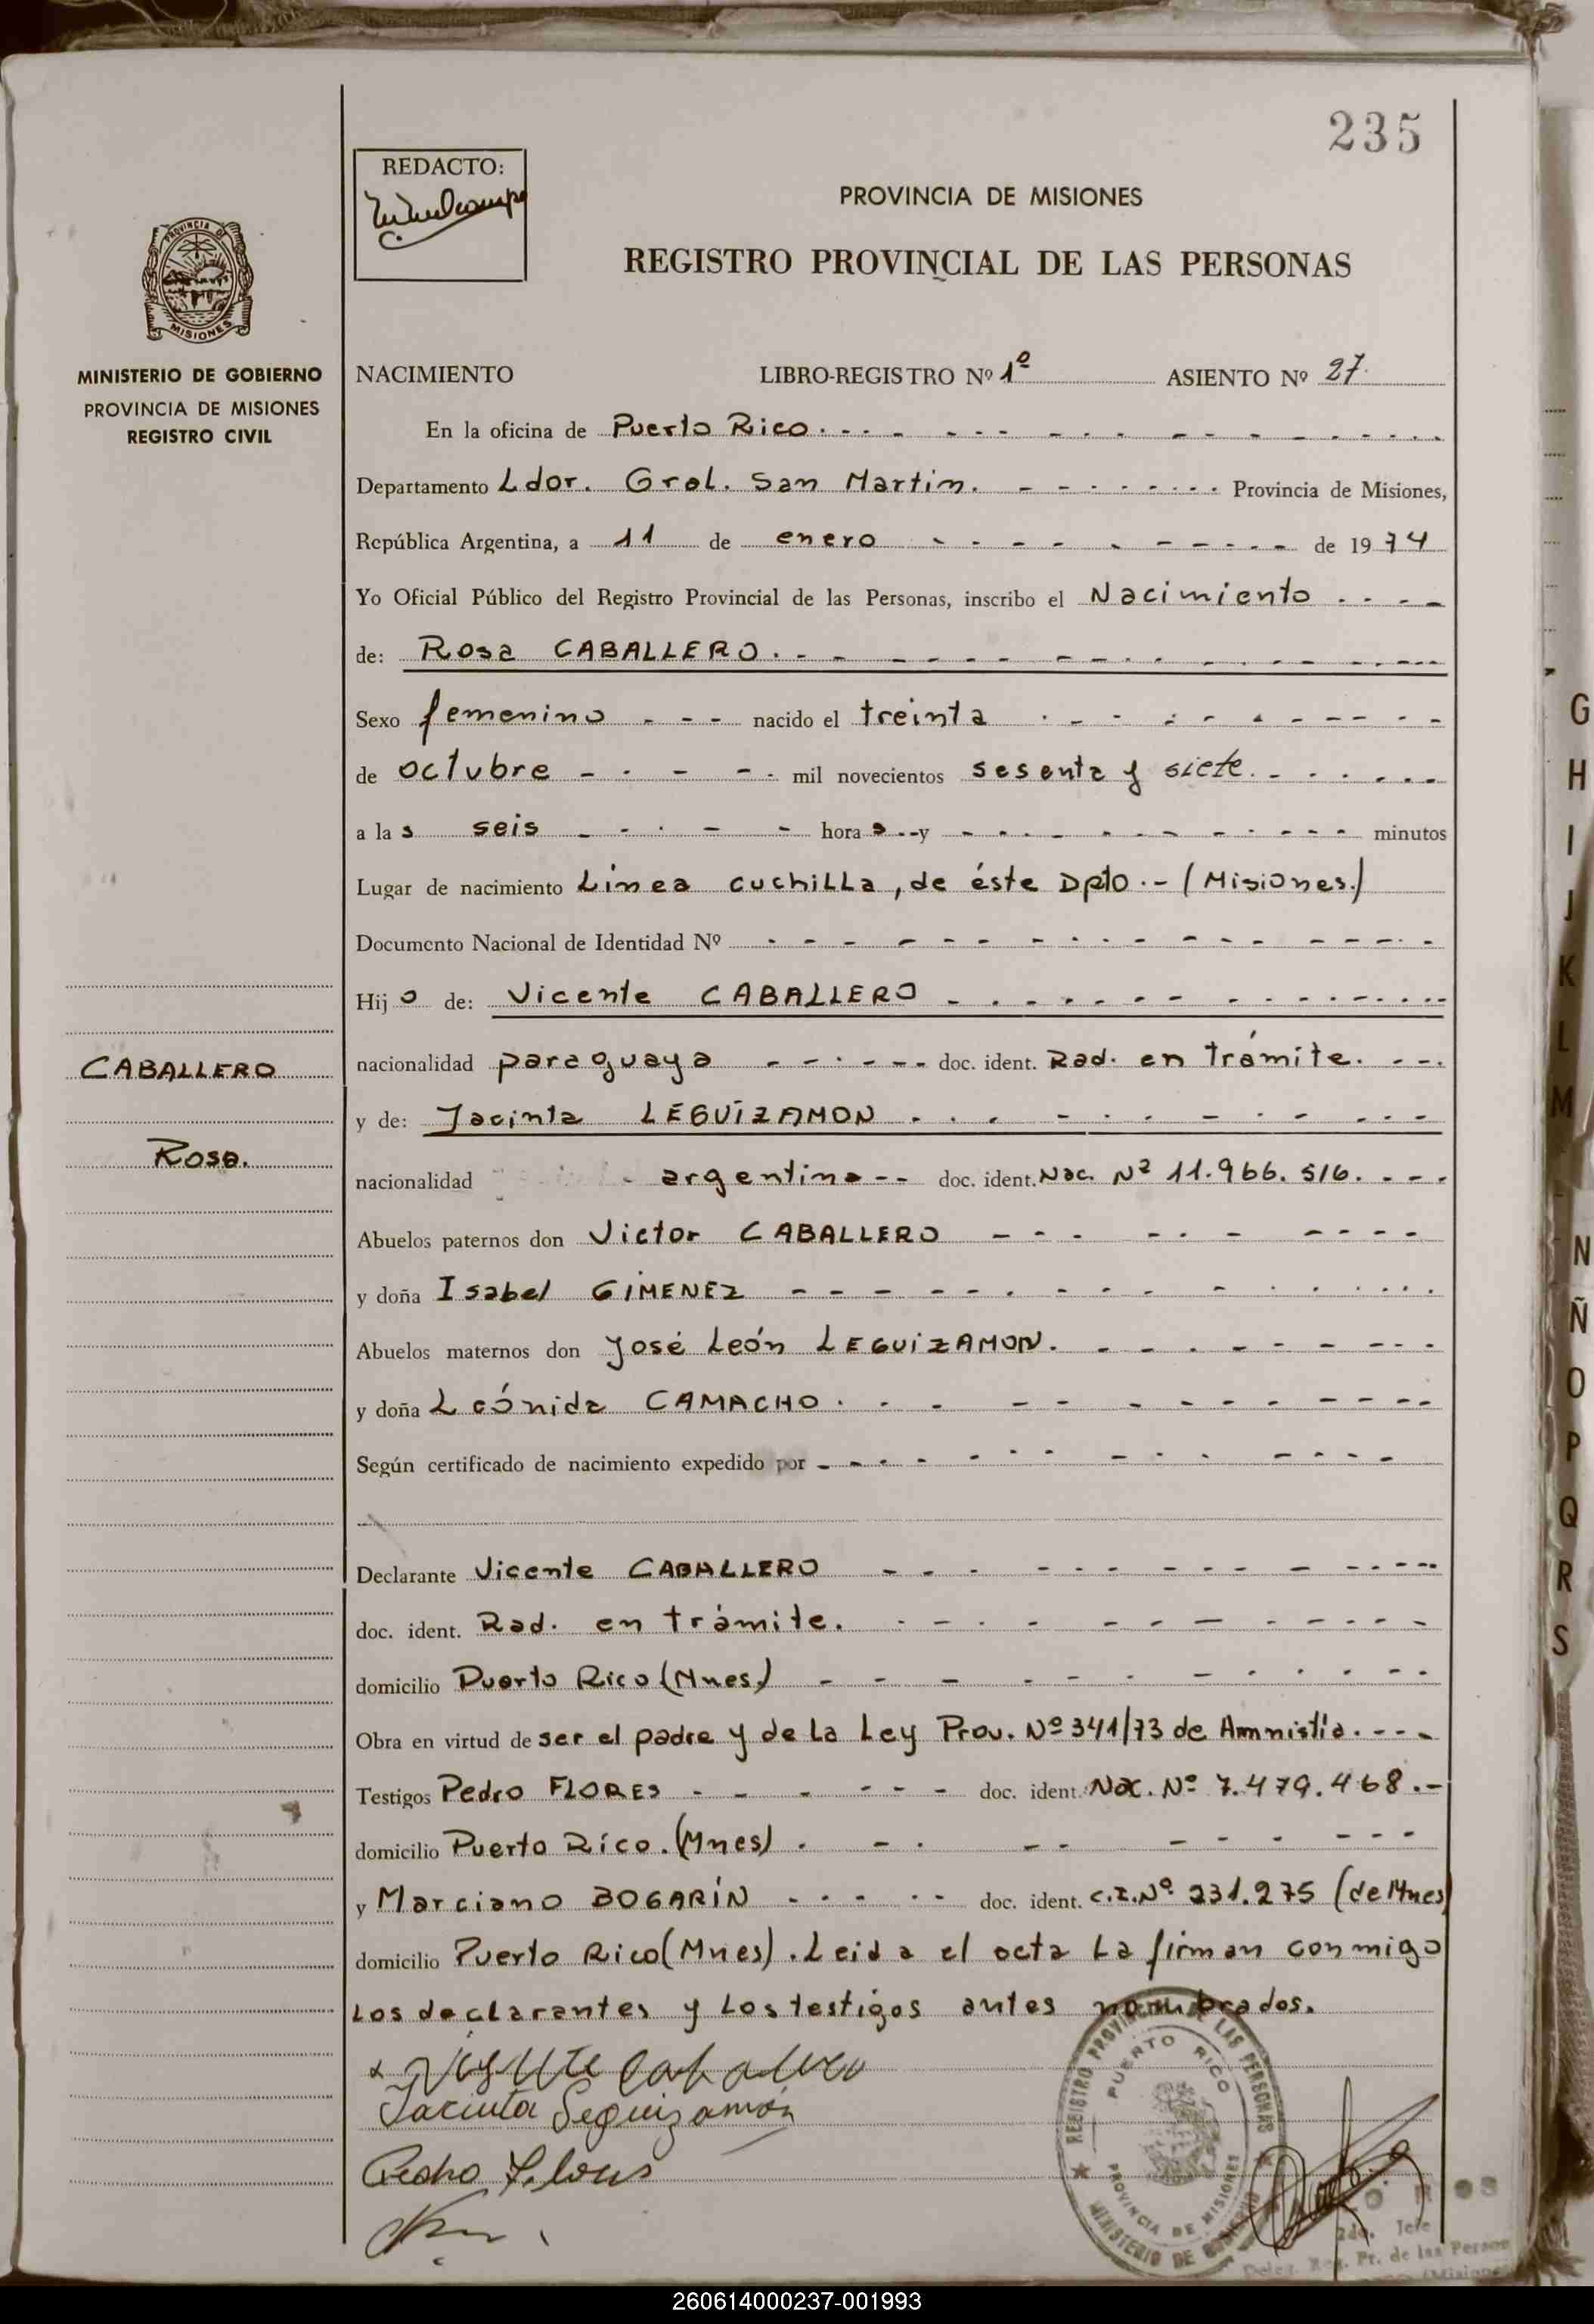 235
REDACTO:
PROVINCIA DE MISIONES
REGISTRO PROVINCIAL DE LAS PERSONAS
PROVINCIA DE
MISIONES
MINISTERIO DE GOBIERNO
PROVINCIA DE MISIONES
REGISTRO CIVIL
NACIMIENTO LIBRO-REGISTRO Nº 1º ASIENTO Nº 27.
En la oficina de Puerto Rico.
Departamento Ldor. Gral. San Martin. Provincia de Misiones,
República Argentina, a 11 de enero de 1974
Yo Oficial Público del Registro Provincial de las Personas, inscribo el Nacimiento
de: Rosa CABALLERO.
Sexo femenino nacido el treinta
de octubre mil novecientos sesenta y siete.
a las seis horas y minutos
Lugar de nacimiento Linea cuchilla, de éste Dpto.- (Misiones.)
Documento Nacional de Identidad Nº
Hijo de: Vicente CABALLERO
CABALLERO
Rosa.
nacionalidad paraguaya doc. ident. Rad. en trámite.
y de: Jacinta LEGUIZAMON
nacionalidad argentina doc. ident. Nac. Nº 11.966.516.
Abuelos paternos don Victor CABALLERO
y doña Isabel GIMENEZ
Abuelos maternos don José León LEGUIZAMON.
y doña Leónida CAMACHO.
Según certificado de nacimiento expedido por
Declarante Vicente CABALLERO
doc. ident. Rad. en trámite.
domicilio Puerto Rico (Mnes.)
Obra en virtud de ser el padre y de la Ley Prov. Nº 341/73 de Amnistía.
Testigos Pedro FLORES doc. ident. Nac. Nº 7.479.468.-
domicilio Puerto Rico. (Mnes)
y Marciano BOGARÍN doc. ident. C.I. Nº 231.275 (de Mnes)
domicilio Puerto Rico (Mnes). Leida el acta la firman conmigo
los declarantes y los testigos antes nombrados.
Vicente Caballero
Jacinta Leguizamón
Pedro Flores
REGISTRO PROVINCIAL DE LAS PERSONAS
PUERTO RICO
PROVINCIA DE MISIONES
MINISTERIO DE GOBIERNO
2do. Jefe
Deleg. Reg. Pr. de las Person
(Misiones
G
H
I
J
K
L
M
N
Ñ
O
P
Q
R
S
260614000237-001993